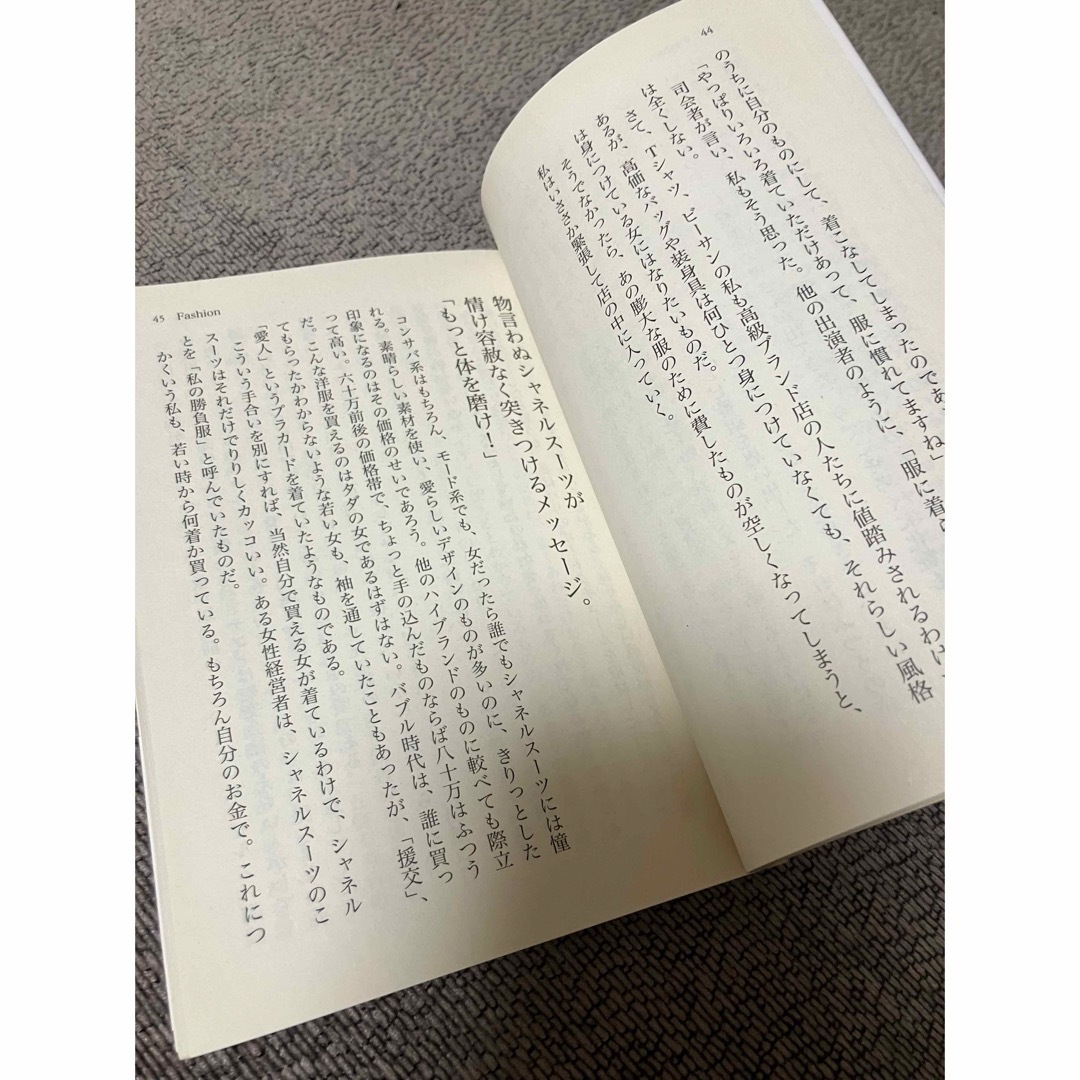 44
のうちに自分のものにして、着こなしてしまったのであ
「やっぱりいろいろ着ていただけあって、服に慣れてますね」
司会者が言い、私もそう思った。他の出演者のように、「服に着ら
は全くしない。
さて、Tシャツ、ビーサンの私も高級ブランド店の人たちに値踏みされるわけ
あるが、高価なバッグや装身具は何ひとつ身につけていなくても、それらしい風格
は身につけている女にはなりたいものだ。
そうでなかったら、あの膨大な服のために費したものが空しくなってしまうと、
私はいささか緊張して店の中に入っていく。
物言わぬシャネルスーツが
情け容赦なく突きつけるメッセージ。
「もっと体を磨け！」
コンサバ系はもちろん、モード系でも、女だったら誰でもシャネルスーツには憧
れる。素晴らしい素材を使い、愛らしいデザインのものが多いのに、きりっとした
印象になるのはその価格のせいであろう。他のハイブランドのものに較べても際立
って高い。六十万前後の価格帯で、ちょっと手の込んだものならば八十万はふつう
だ。こんな洋服を買えるのはタダの女であるはずはない。バブル時代は、誰に買っ
てもらったかわからないような若い女も、袖を通していたこともあったが、「援交」、
「愛人」というプラカードを着ていたようなものである。
こういう手合いを別にすれば、当然自分で買える女が着ているわけで、シャネル
スーツはそれだけでりりしくカッコいい。ある女性経営者は、シャネルスーツのこ
とを「私の勝負服」と呼んでいたものだ。
かくいう私も、若い時から何着か買っている。もちろん自分のお金で。これにつ
45 Fashion